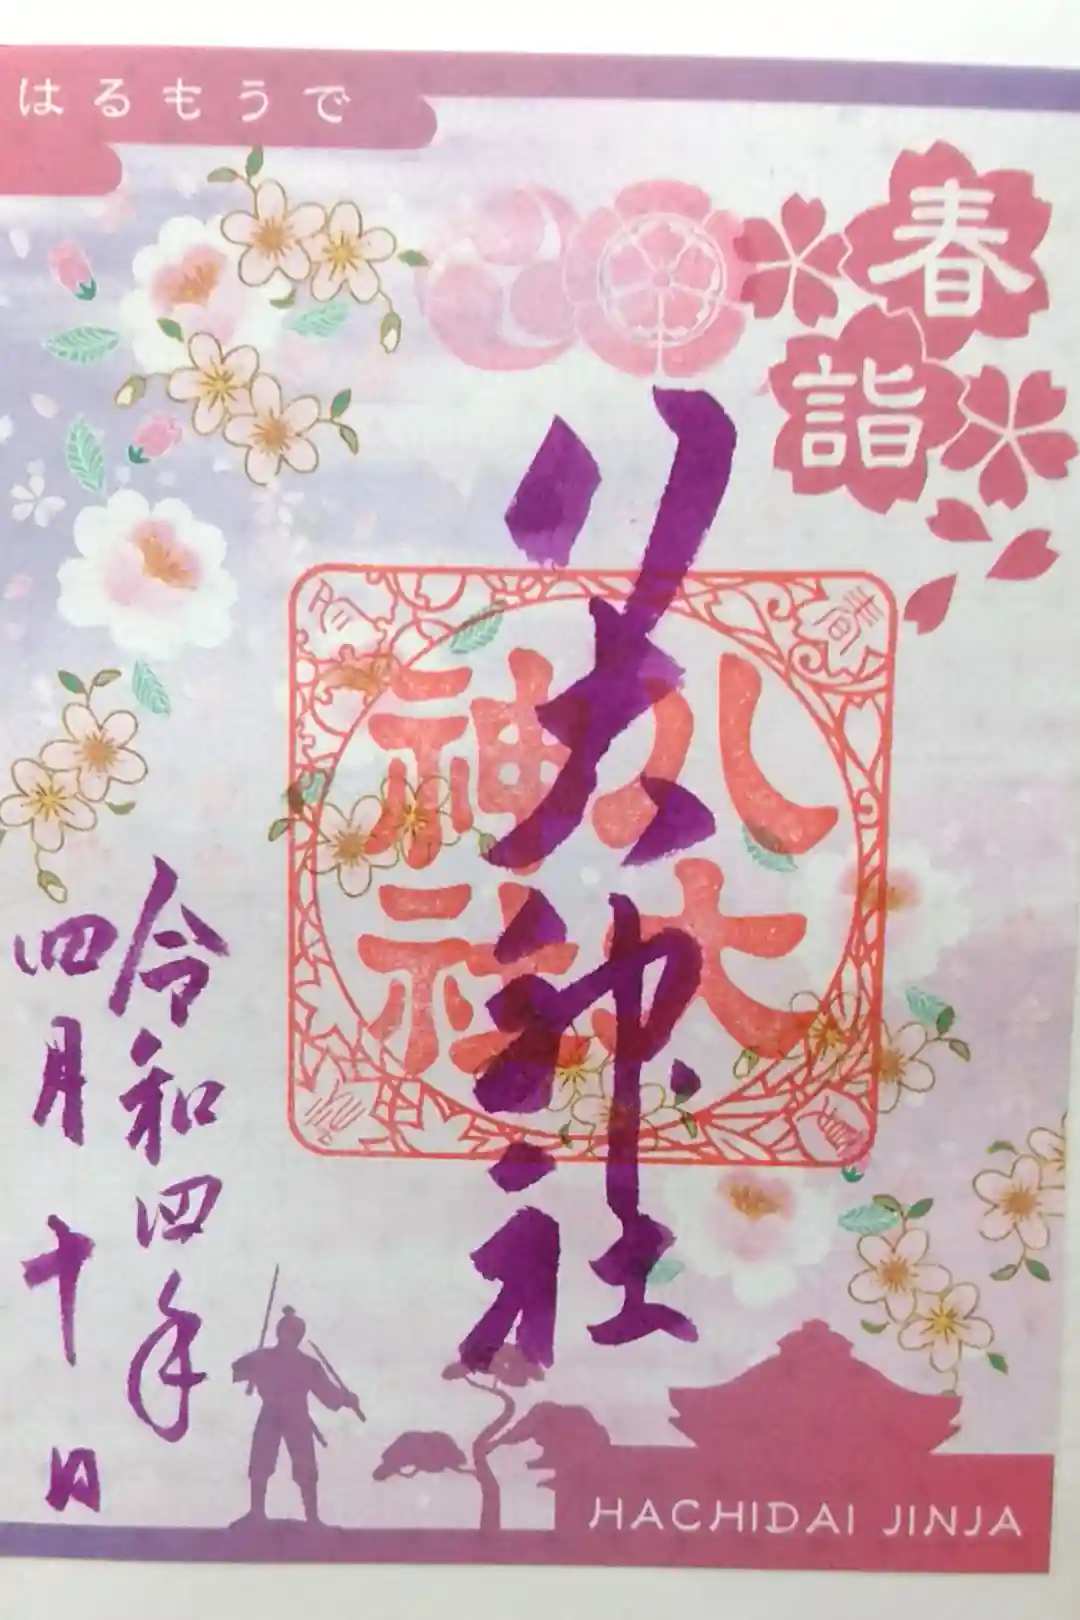 はるもうで
春
詣
八大
神社
八大
神社
令和四年
四月十日
HACHIDAI JINJA